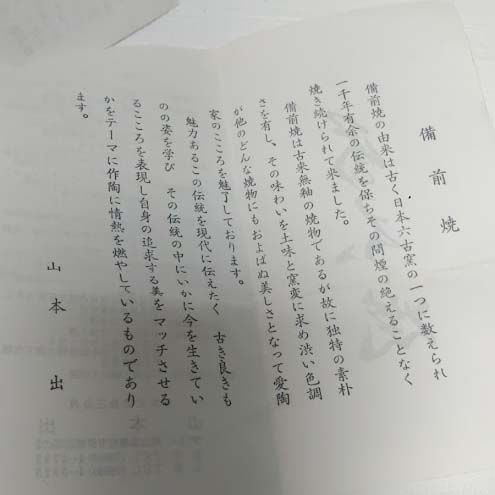 備前焼
備前焼の由来は古く日本六古窯の一つに数えられ
一千年有余の伝統を保ちその間煙の絶えることなく
焼き続けられて来ました。
備前焼は古来無釉の焼物であるが故に独特の素朴
さを有し、その味わいを土味と窯変に求め渋い色調
が他のどんな焼物にもおよばぬ美しさとなって愛陶
家のこころを魅了しております。
魅力あるこの伝統を現代に伝えたく 古き良きも
のの姿を学び その伝統の中にいかに今を生きてい
るこころを表現し自身の追求する美をマッチさせる
かをテーマに作陶に情熱を燃やしているものであり
ます。
山本出